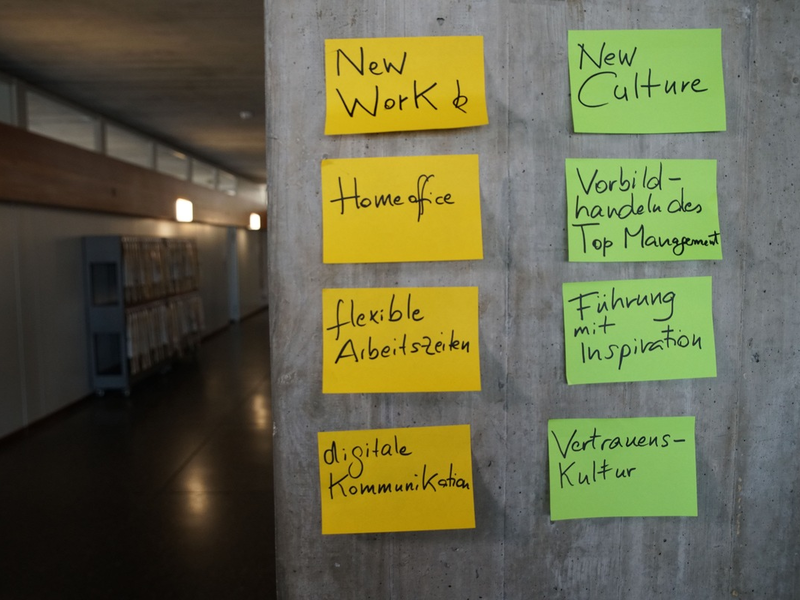 New
Work &
Homeoffice
flexible
Arbeitszeiten
digitale
Kommunikation
New
Culture
Vorbild-
handeln des
Top Management
Führung
mit
Inspiration
Vertrauens-
Kultur